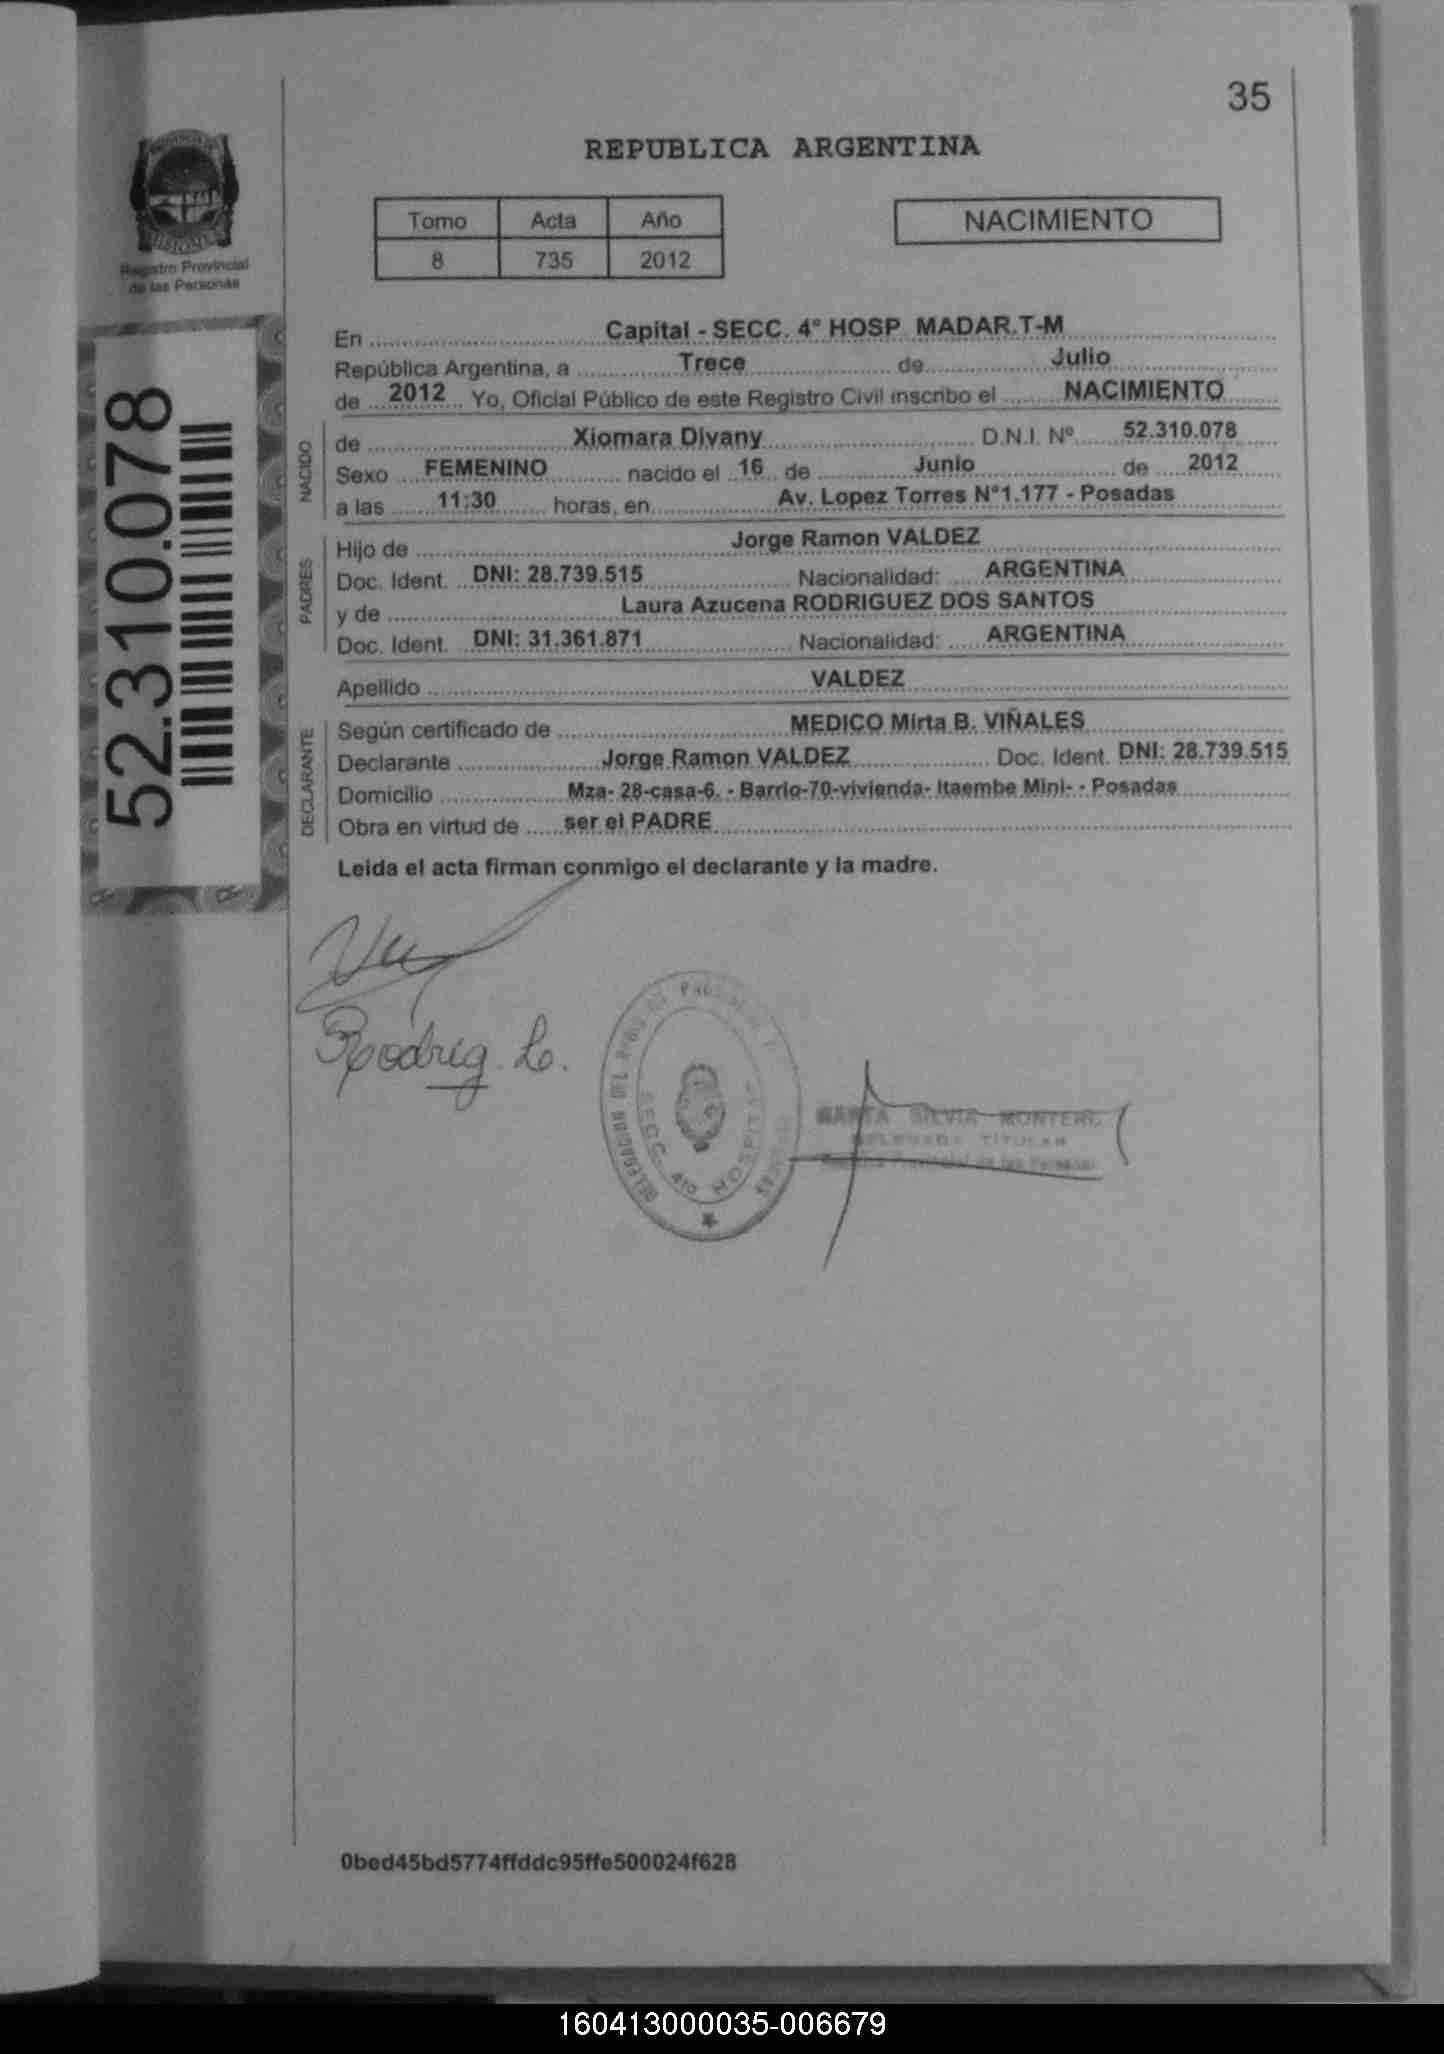 35
REPUBLICA ARGENTINA
Tomo Acta Año
8 735 2012
NACIMIENTO
Registro Provincial
de las Personas
52.310.078
En Capital - SECC. 4° HOSP MADAR.T-M
República Argentina, a Trece de Julio
de 2012 Yo, Oficial Público de este Registro Civil inscribo el NACIMIENTO
NACIDO
de Xiomara Divany D.N.I. Nº 52.310.078
Sexo FEMENINO nacido el 16 de Junio de 2012
a las 11:30 horas, en Av. Lopez Torres N°1.177 - Posadas
PADRES
Hijo de Jorge Ramon VALDEZ
Doc. Ident. DNI: 28.739.515 Nacionalidad: ARGENTINA
y de Laura Azucena RODRIGUEZ DOS SANTOS
Doc. Ident. DNI: 31.361.871 Nacionalidad: ARGENTINA
Apellido VALDEZ
DECLARANTE
Según certificado de MEDICO Mirta B. VIÑALES
Declarante Jorge Ramon VALDEZ Doc. Ident. DNI: 28.739.515
Domicilio Mza- 28-casa-6. - Barrio-70-vivienda- Itaembe Mini- - Posadas
Obra en virtud de ser el PADRE
Leida el acta firman conmigo el declarante y la madre.
Rodrig. L.
SECC. 4to HOSPITAL
SILVIA MONTERO
TITULAR
0bed45bd5774ffddc95ffe500024f628
160413000035-006679